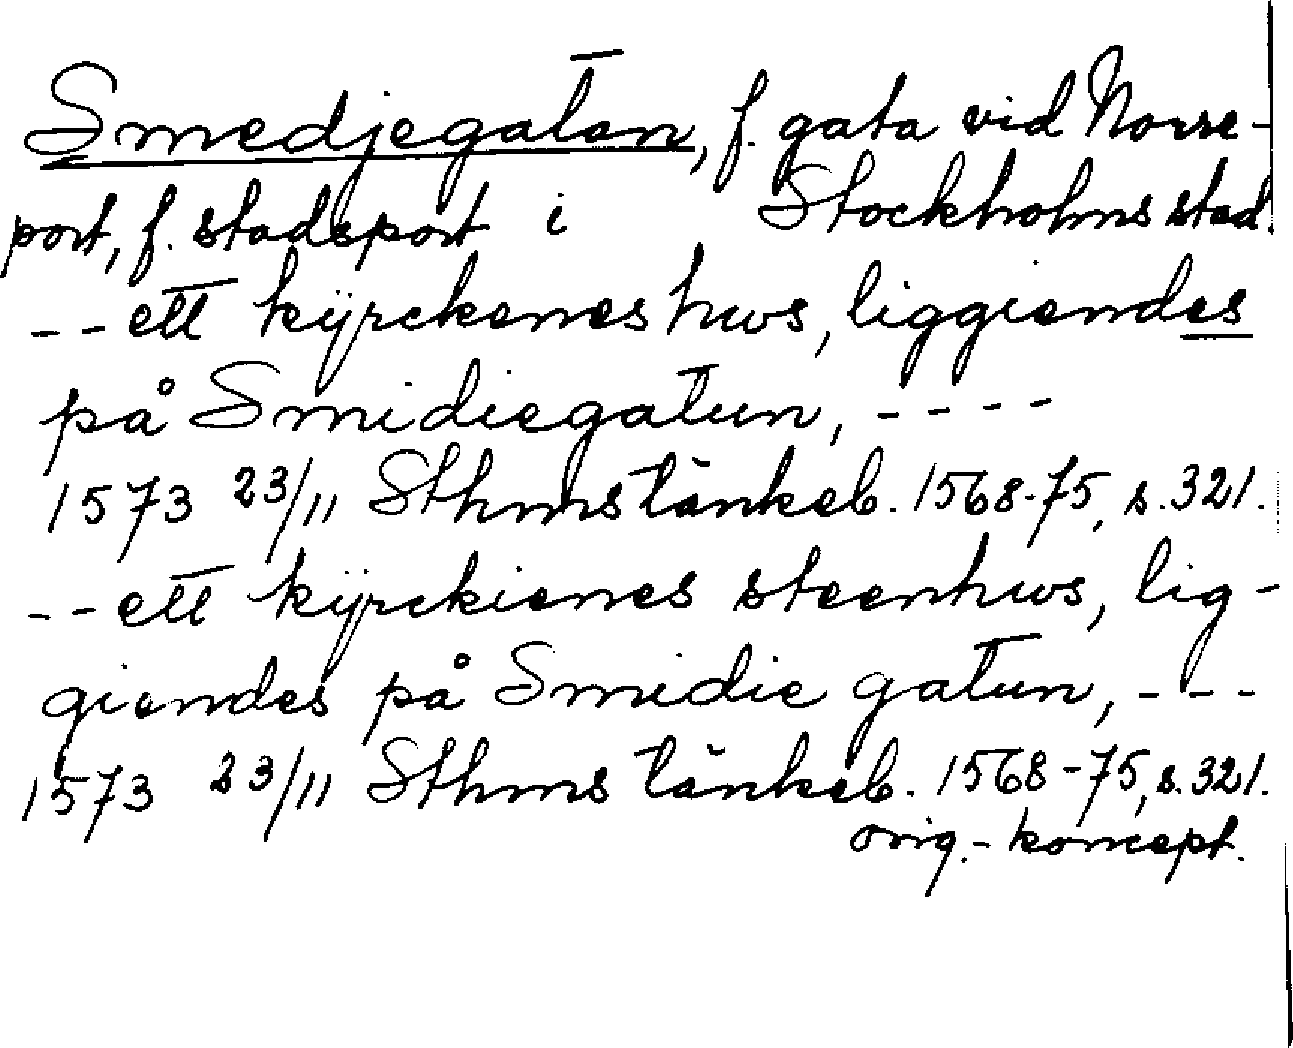 Smedjegatan, f. gata vid Norre-
port, f. stadsport i Stockholms stad.
-- ett kÿrckenes hws, liggiendes
på Smidiegatun, ----
1573 23/11 Sthms tänkeb. 1568-75, s. 321.
-- ett kÿrckienes steenhws, lig-
giendes på Smidie gatun, ---
1573 23/11 Sthms tänkeb. 1568-75, s. 321.
orig.-koncept.